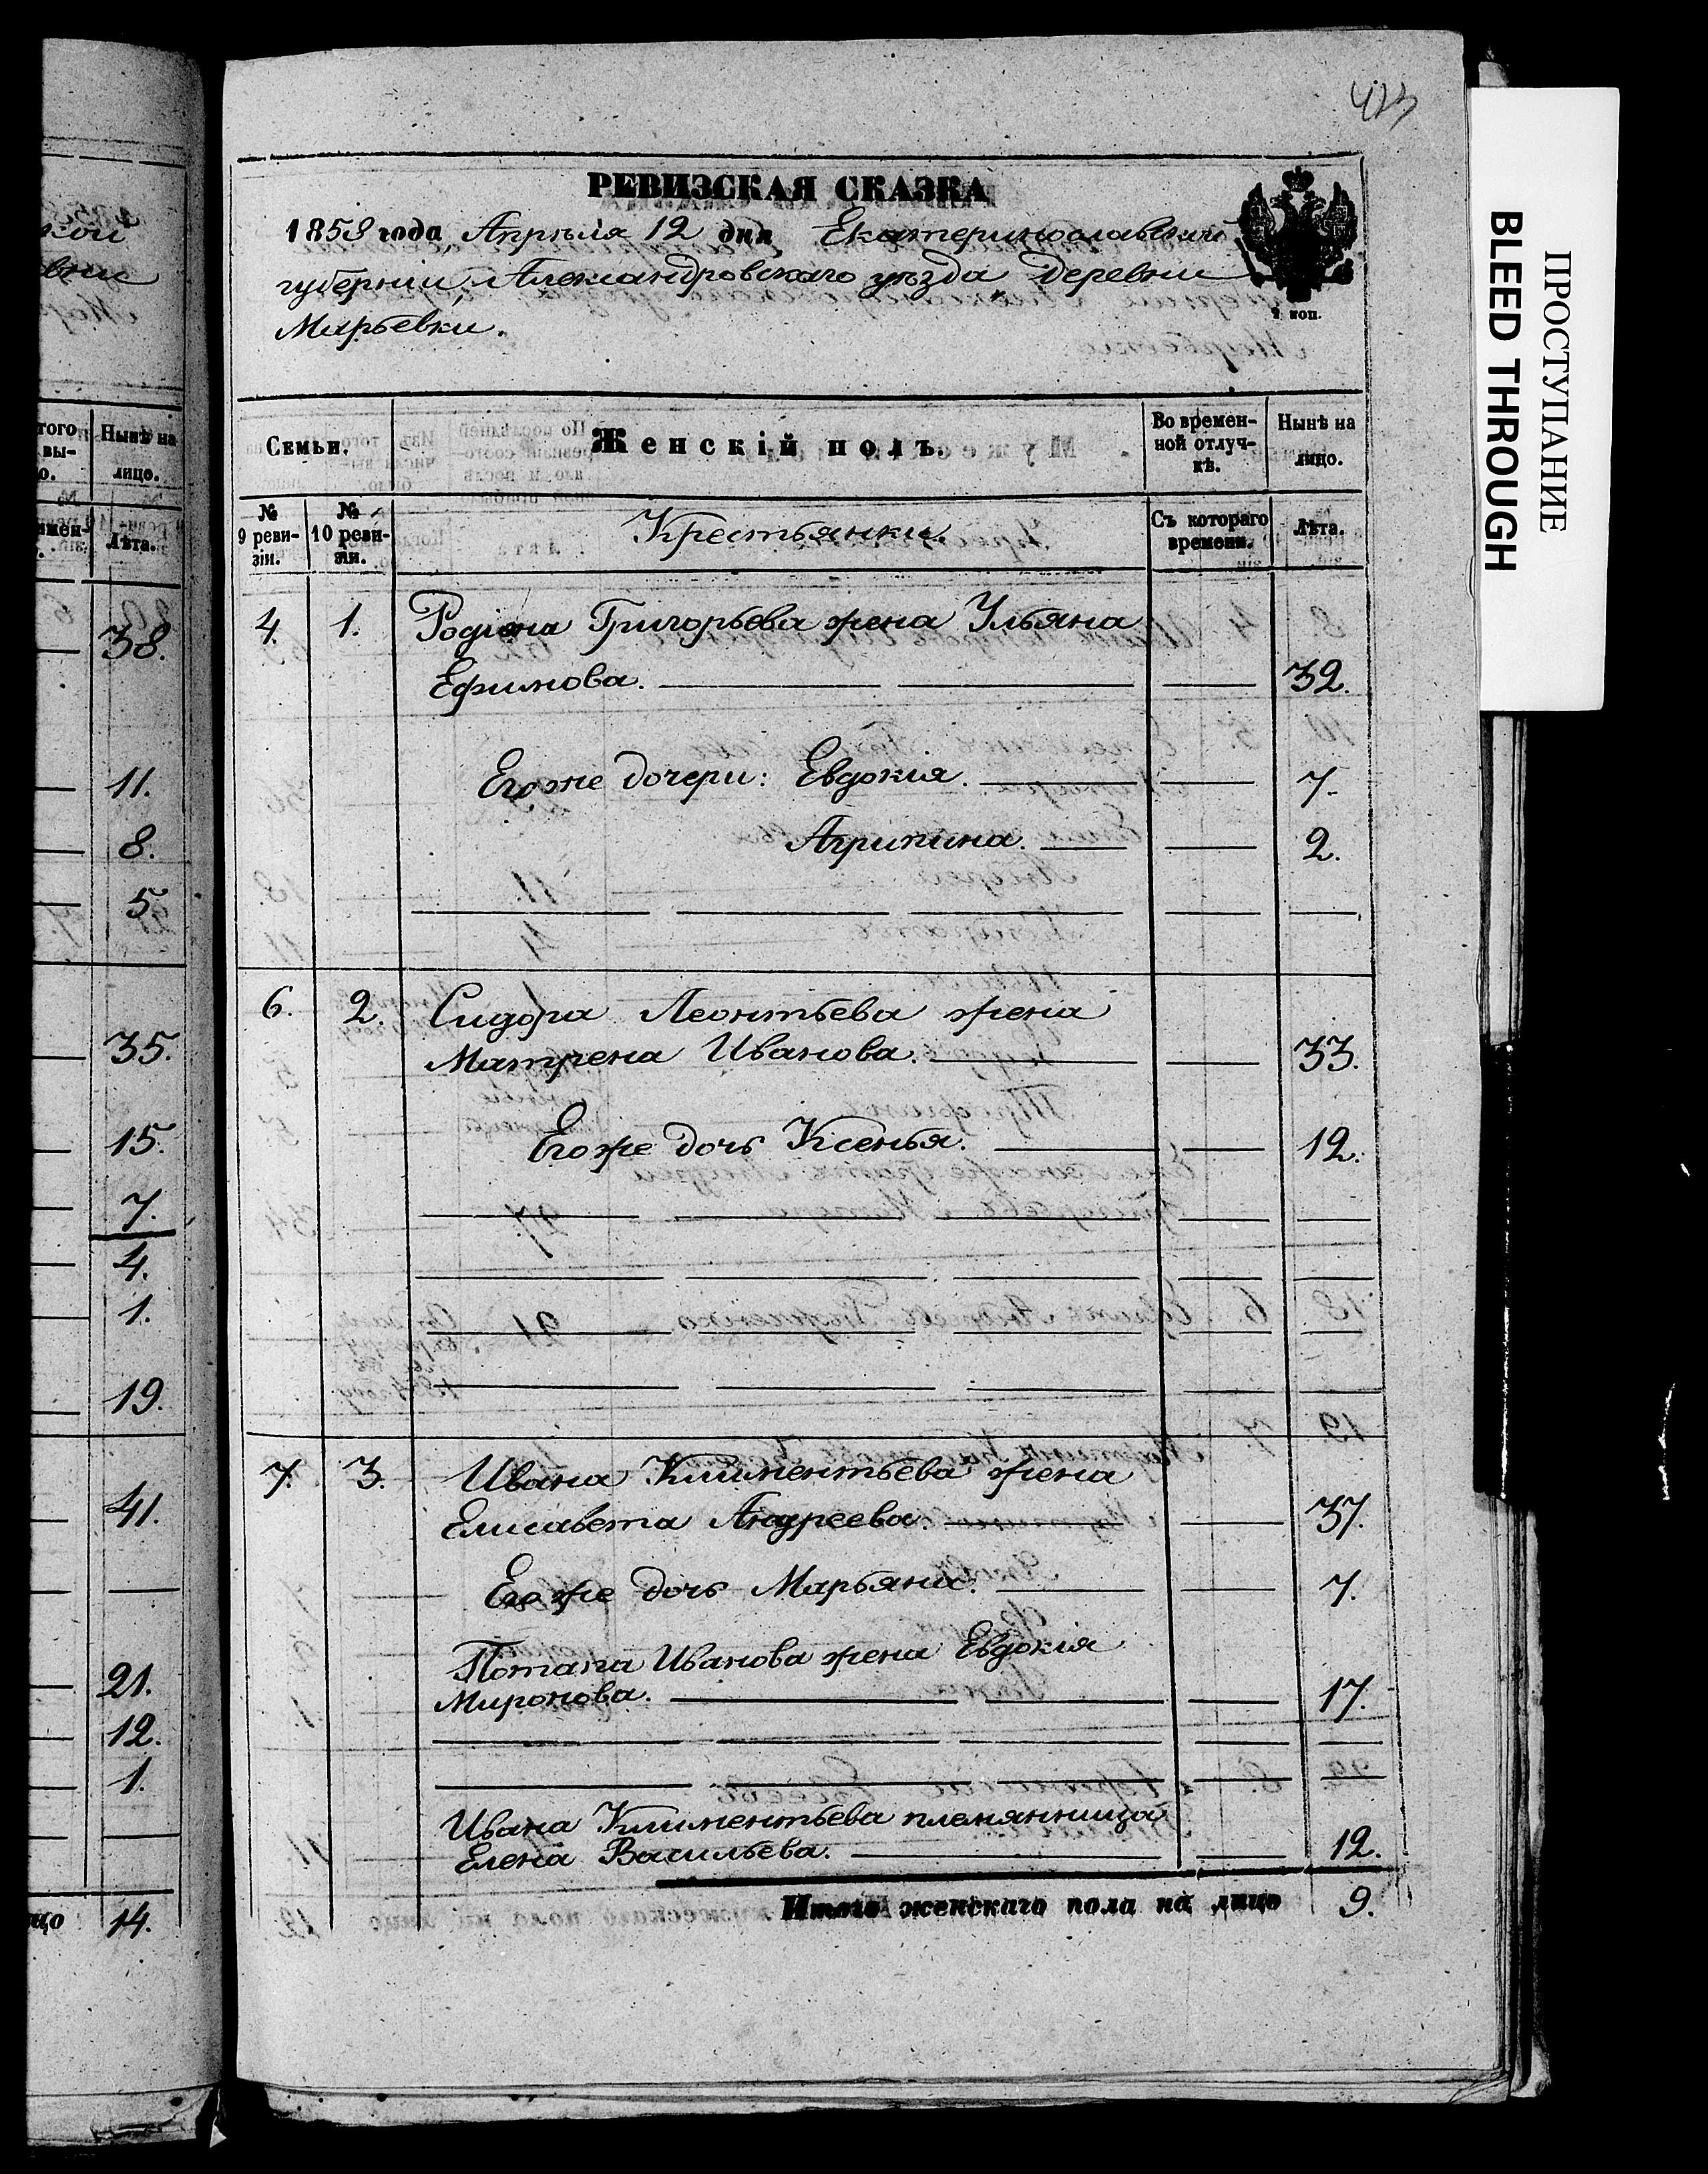 423
РЕВИЗСКАЯ СКАЗКА
1858 года Апрѣля 12 дня Екатеринославской
губерніи, Александровскаго уѣзда, деревни
Марьевки.
7 коп.
Семьи.
Женскій полъ.
Во времен-
ной отлуч-
кѣ.
Нынѣ на
лицо.
№
9 реви-
зіи.
№
10 реви-
зіи.
Крестьянки.
Съ котораго
времени.
Лѣта.
4. 1. Родіона Григорьева жена Ульяна
Ефимова. 32.
Его же дочери: Евдокія. 7.
Агрипина. 2.
6. 2. Сидора Леонтьева жена
Матрена Иванова. 33.
Его же дочь Ксенья. 12.
7. 3. Ивана Климентьева жена
Елисавета Андреева. 37.
Его же дочь Марьяна. 7.
Потапа Иванова жена Евдокія
Миронова. 17.
Ивана Климентьева племянница
Елена Васильева. 12.
Итого женскаго пола на лицо 9.
Нынѣ на
лицо.
Лѣта.
38.
11.
8.
5
35.
15.
7.
4.
1.
19.
41.
21.
12.
1.
14.
ПРОСТУПАНИЕ
BLEED THROUGH